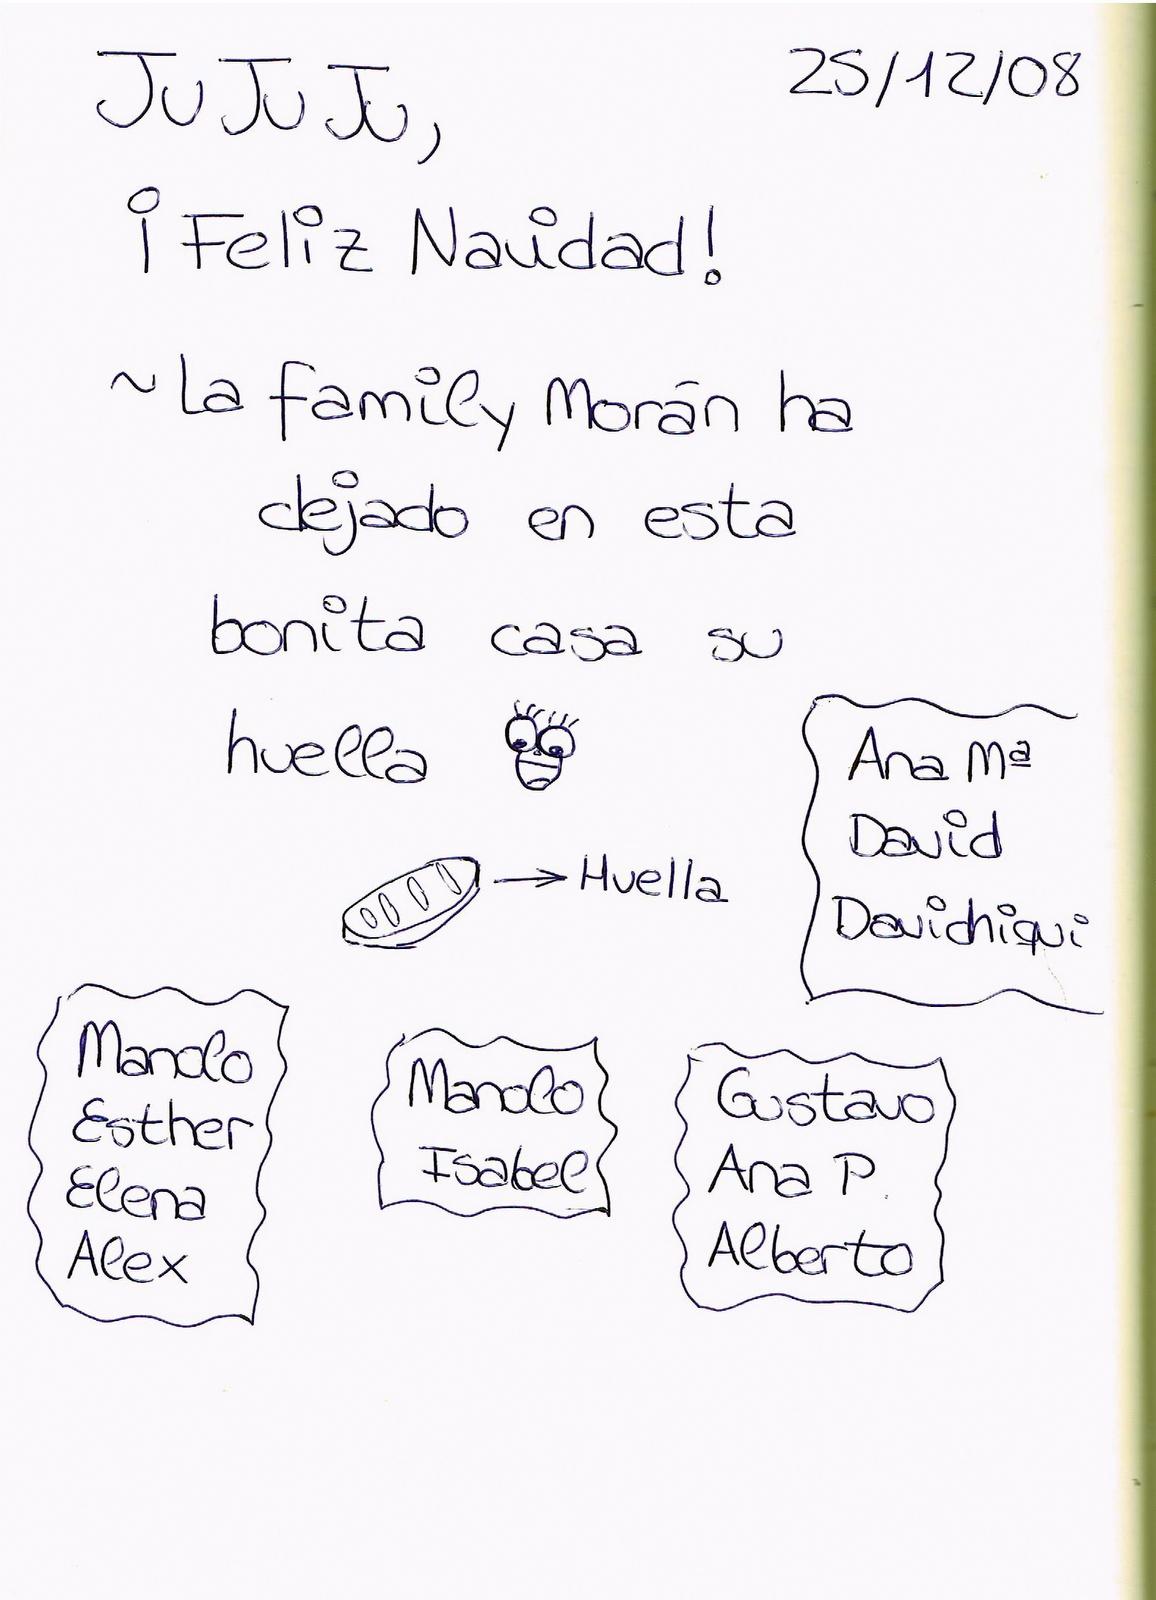 JU JU JU,
25/12/08
¡Feliz Navidad!
~ La family Morán ha
dejado en esta
bonita casa su
huella
→ Huella
Ana Mª
David
Davichiqui
Manolo
Esther
Elena
Alex
Manolo
Isabel
Gustavo
Ana P.
Alberto